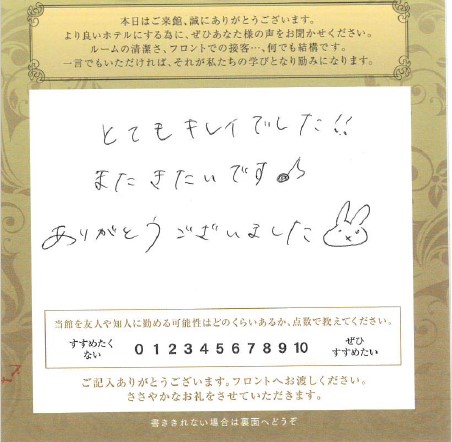 本日はご来館、誠にありがとうございます。
より良いホテルにする為に、ぜひあなた様の声をお聞かせください。
ルームの清潔さ、フロントでの接客…、何でも結構です。
一言でもいただければ、それが私たちの学びとなり励みになります。
とてもキレイでした!!
またきたいです♪
ありがとうございました
当館を友人や知人に勧める可能性はどのくらいあるか、点数で教えてください。
すすめたくない 0 1 2 3 4 5 6 7 8 9 10 ぜひすすめたい
ご記入ありがとうございます。フロントへお渡しください。
ささやかなお礼をさせていただきます。
書ききれない場合は裏面へどうぞ